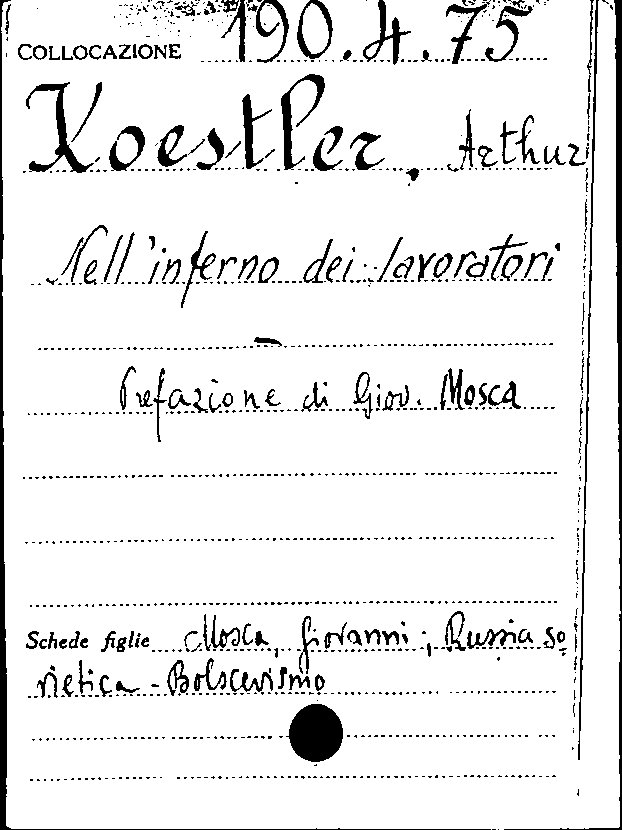 COLLOCAZIONE 190.4.75
Koestler, Arthur
Nell'inferno dei lavoratori
—
Prefazione di Giov. Mosca
Schede figlie Mosca, Giovanni; Russia so=
vietica - Bolscevismo